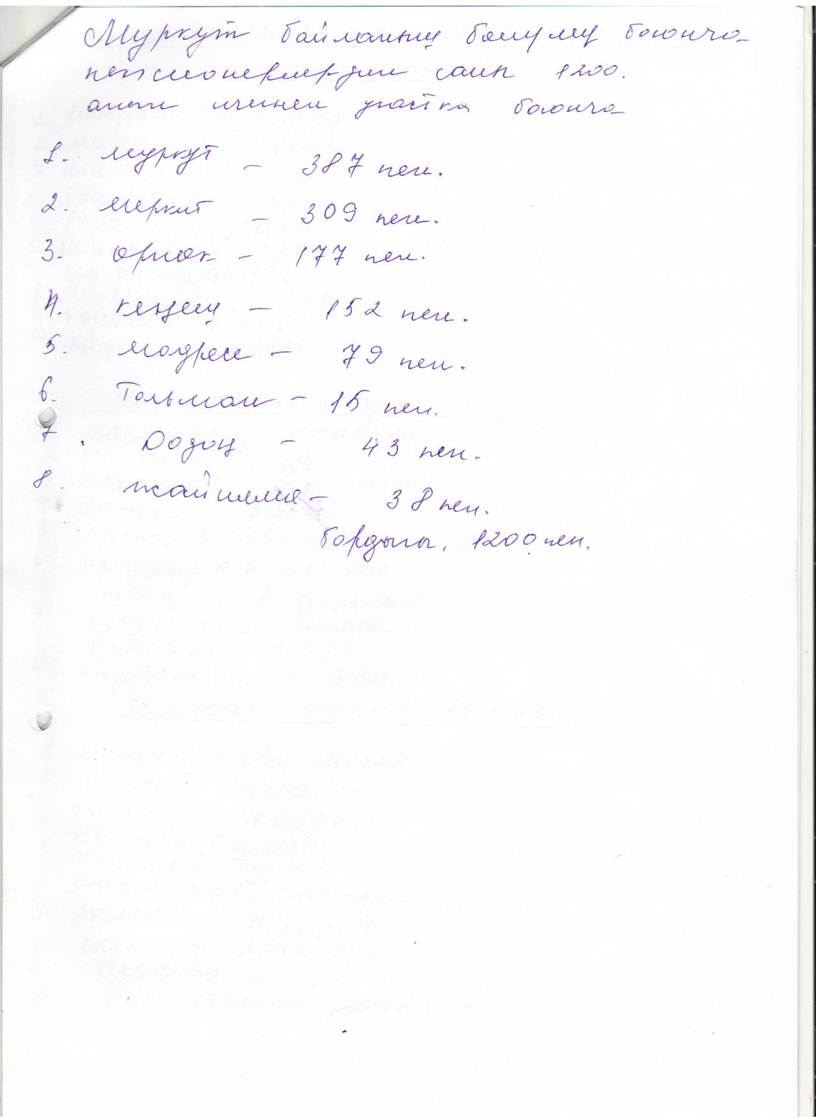 Муркут байланыш бөлүмү боюнча
пенсионерлердин саны 1200.
анын ичинен участка боюнча
1. Муркут – 387 пен.
2. меркит – 309 пен.
3. орнок – 177 пен.
4. кеңеш – 152 пен.
5. модресе – 79 пен.
6. Тольман – 15 пен.
7. Додоң – 43 пен.
8. жайилма – 38 пен.
бордыгы, 1200 пен.